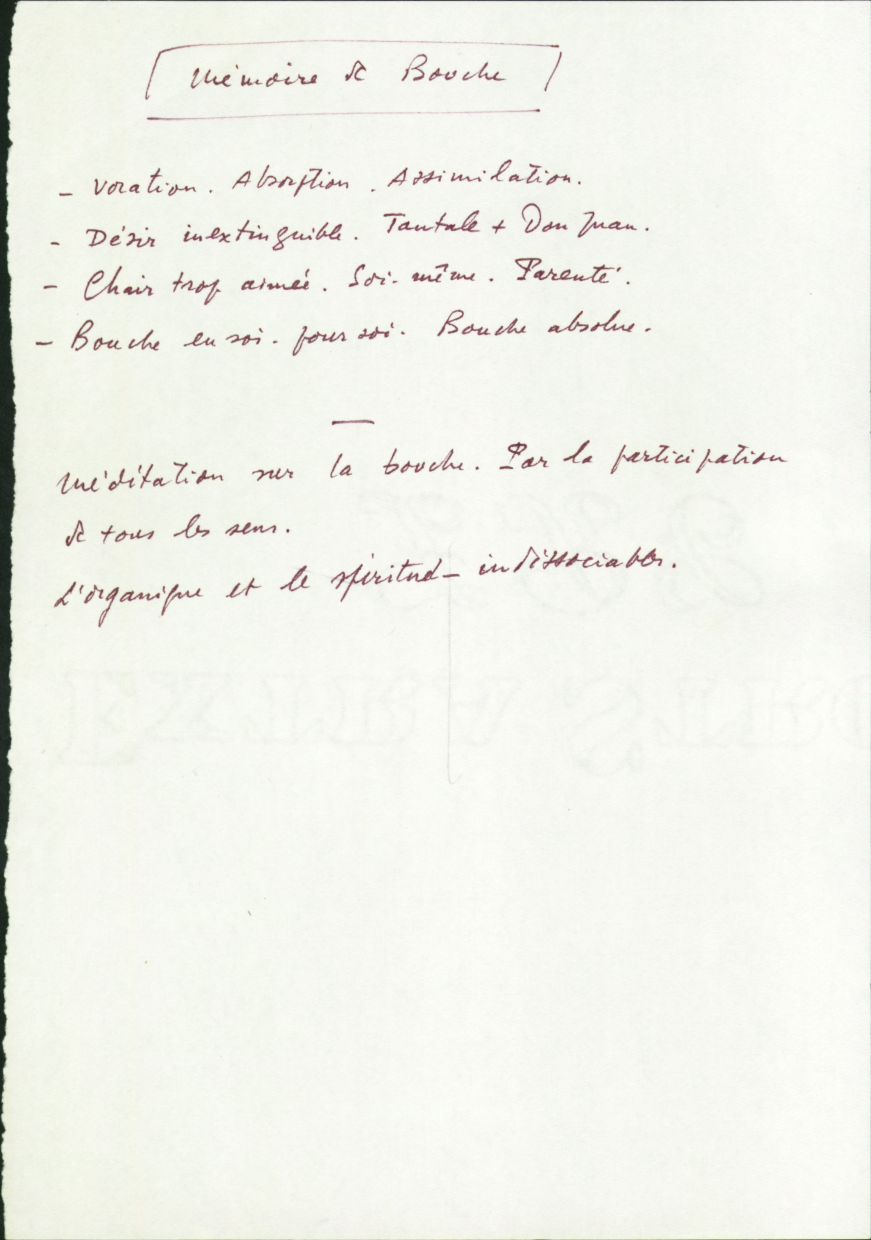 Mémoire de Bouche
- Voration. Absorption. Assimilation.
- Désir inextinguible. Tantale + Don Juan.
- Chair trop aimée. Soi-même. Parenté.
- Bouche en soi - pour soi. Bouche absolue.
Méditation sur la bouche. Par la participation
de tous les sens.
L'organique et le spirituel - indissociables.